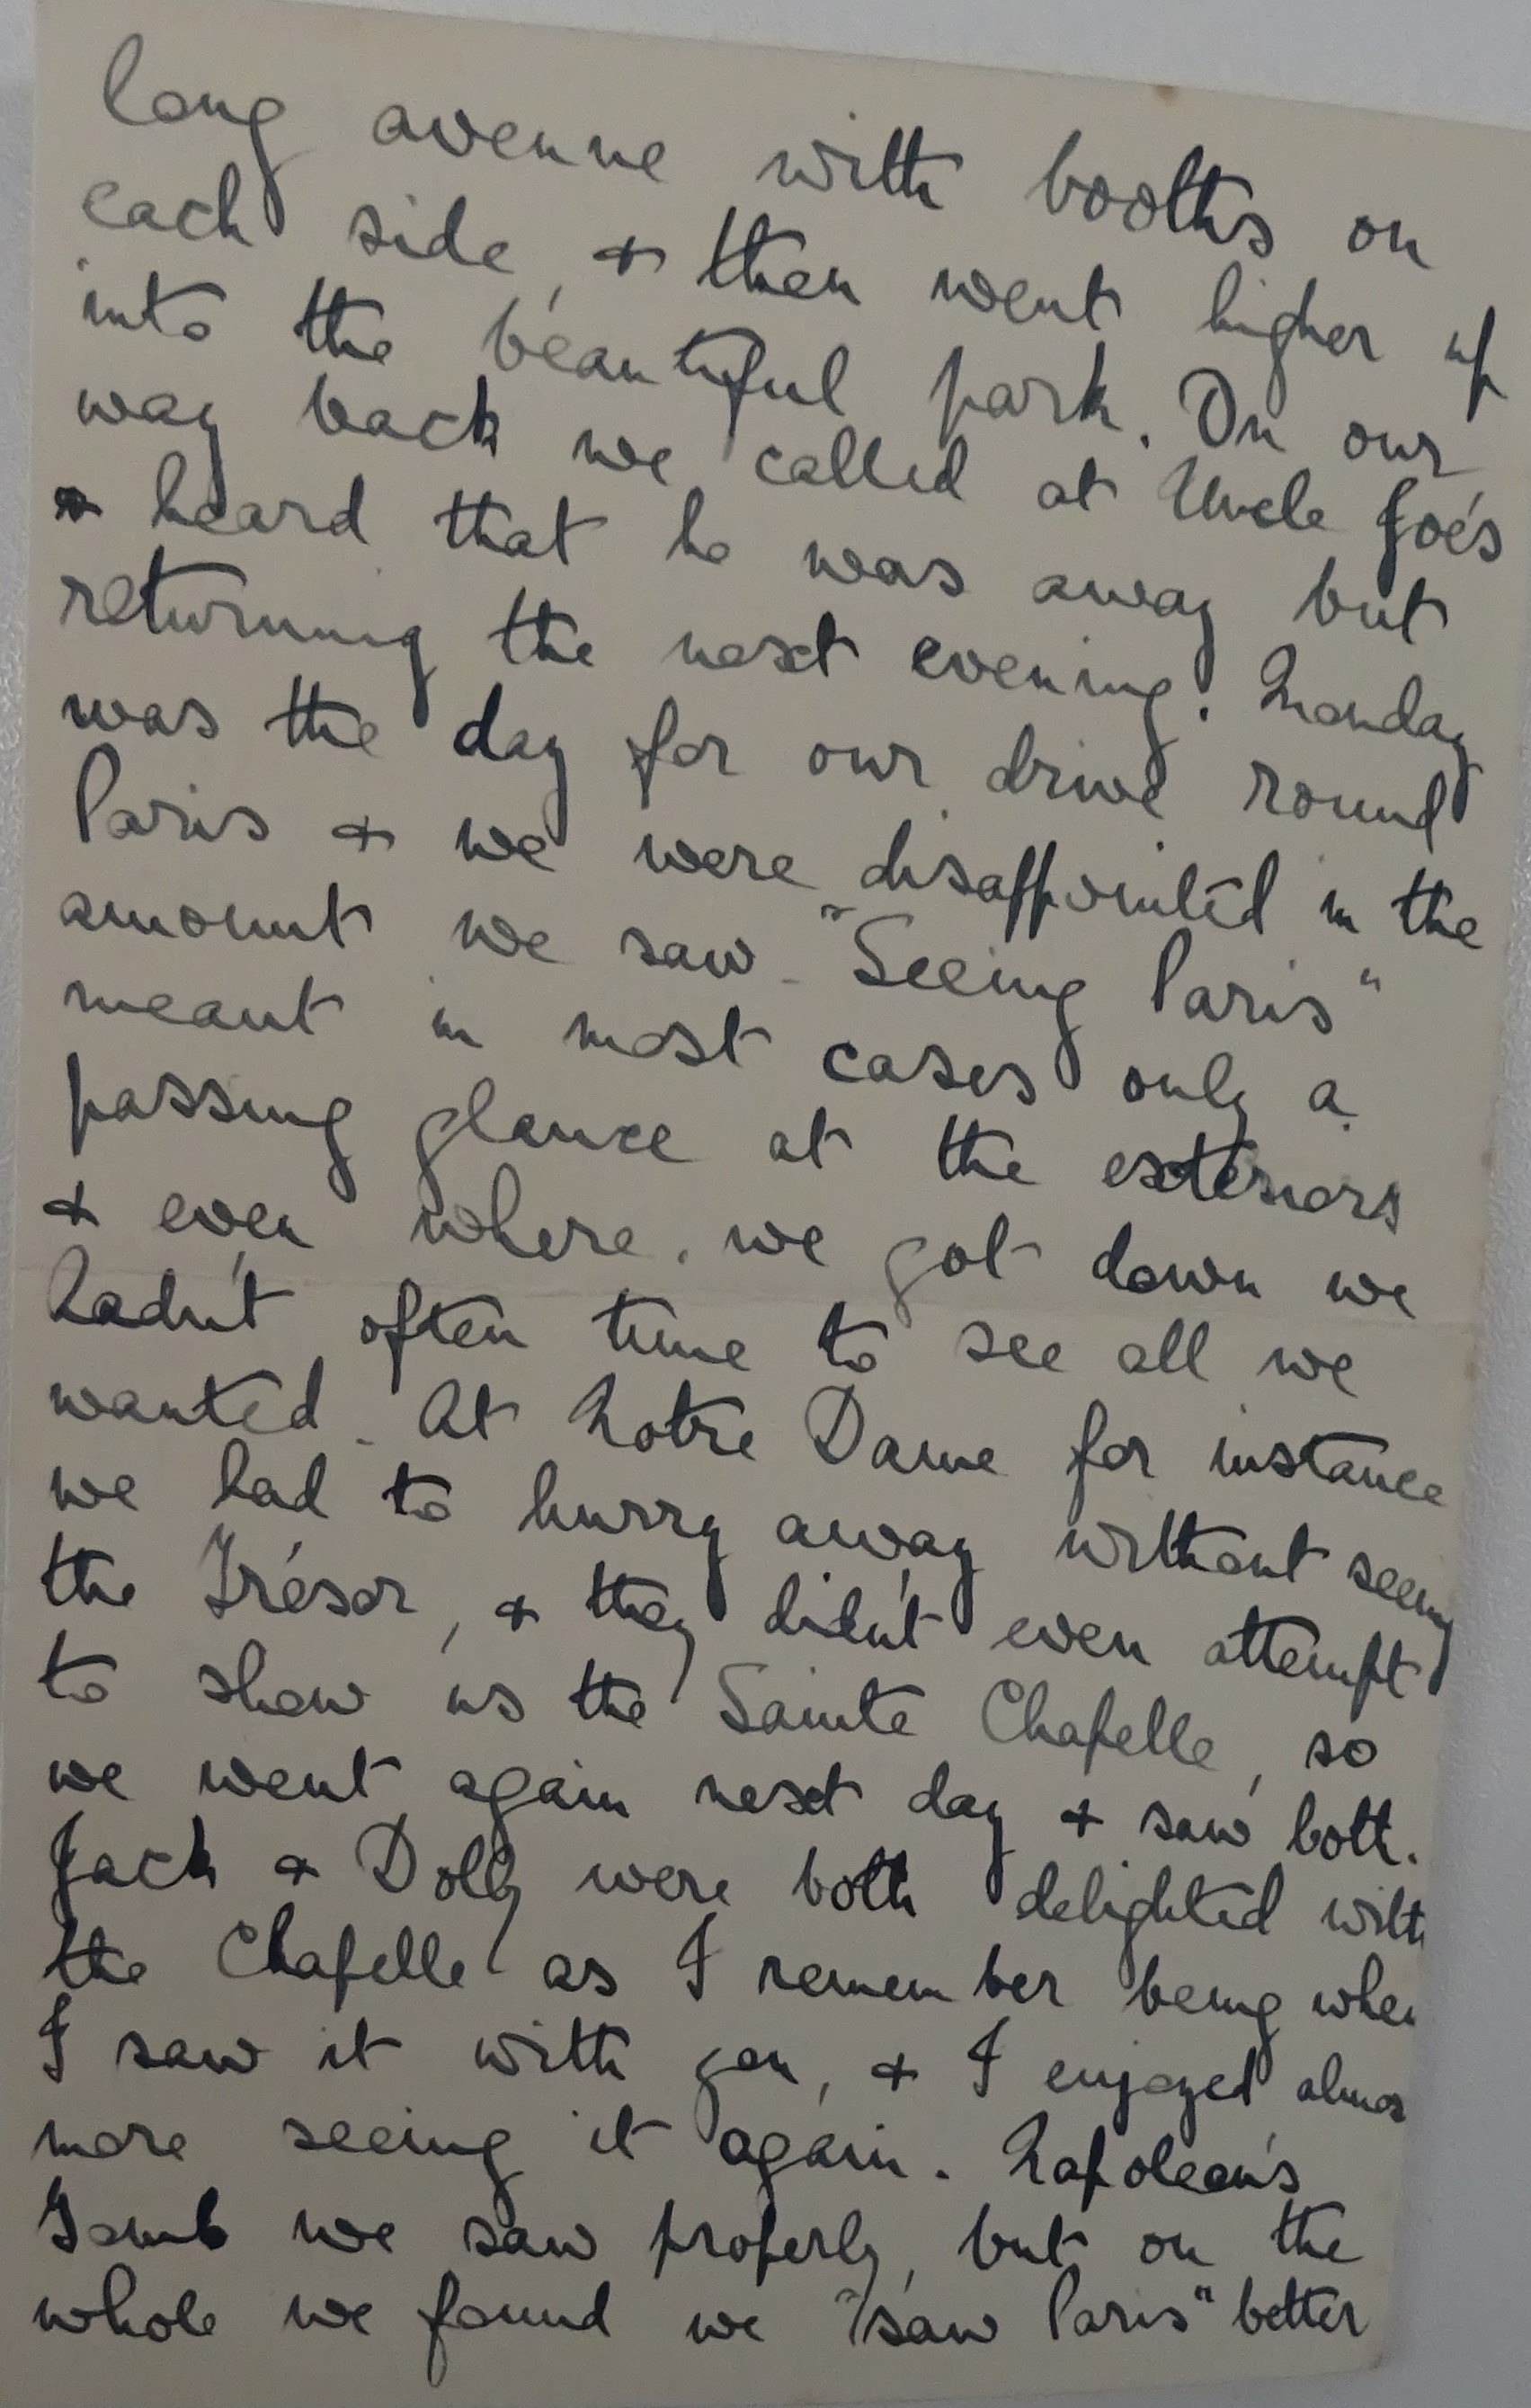 long avenue with booths on
each side, & then went higher up
into the beautiful park. On our
way back we called at Uncle Joe's
& heard that he was away but
returning the next evening. Monday
was the day for our drive round
Paris & we were disappointed in the
amount we saw - "Seeing Paris"
meant in most cases only a
passing glance at the exteriors
& even where we got down we
hadn't often time to see all we
wanted. At Notre Dame for instance
we had to hurry away without seeing
the Trésor, & they didn't even attempt
to show us the Sainte Chapelle, so
we went again next day & saw both.
Jack & Dolly were both delighted with
the Chapelle as I remember being when
I saw it with you, & I enjoyed almos
more seeing it again. Napoleon's
Tomb we saw properly, but on the
whole we found we "saw Paris" better